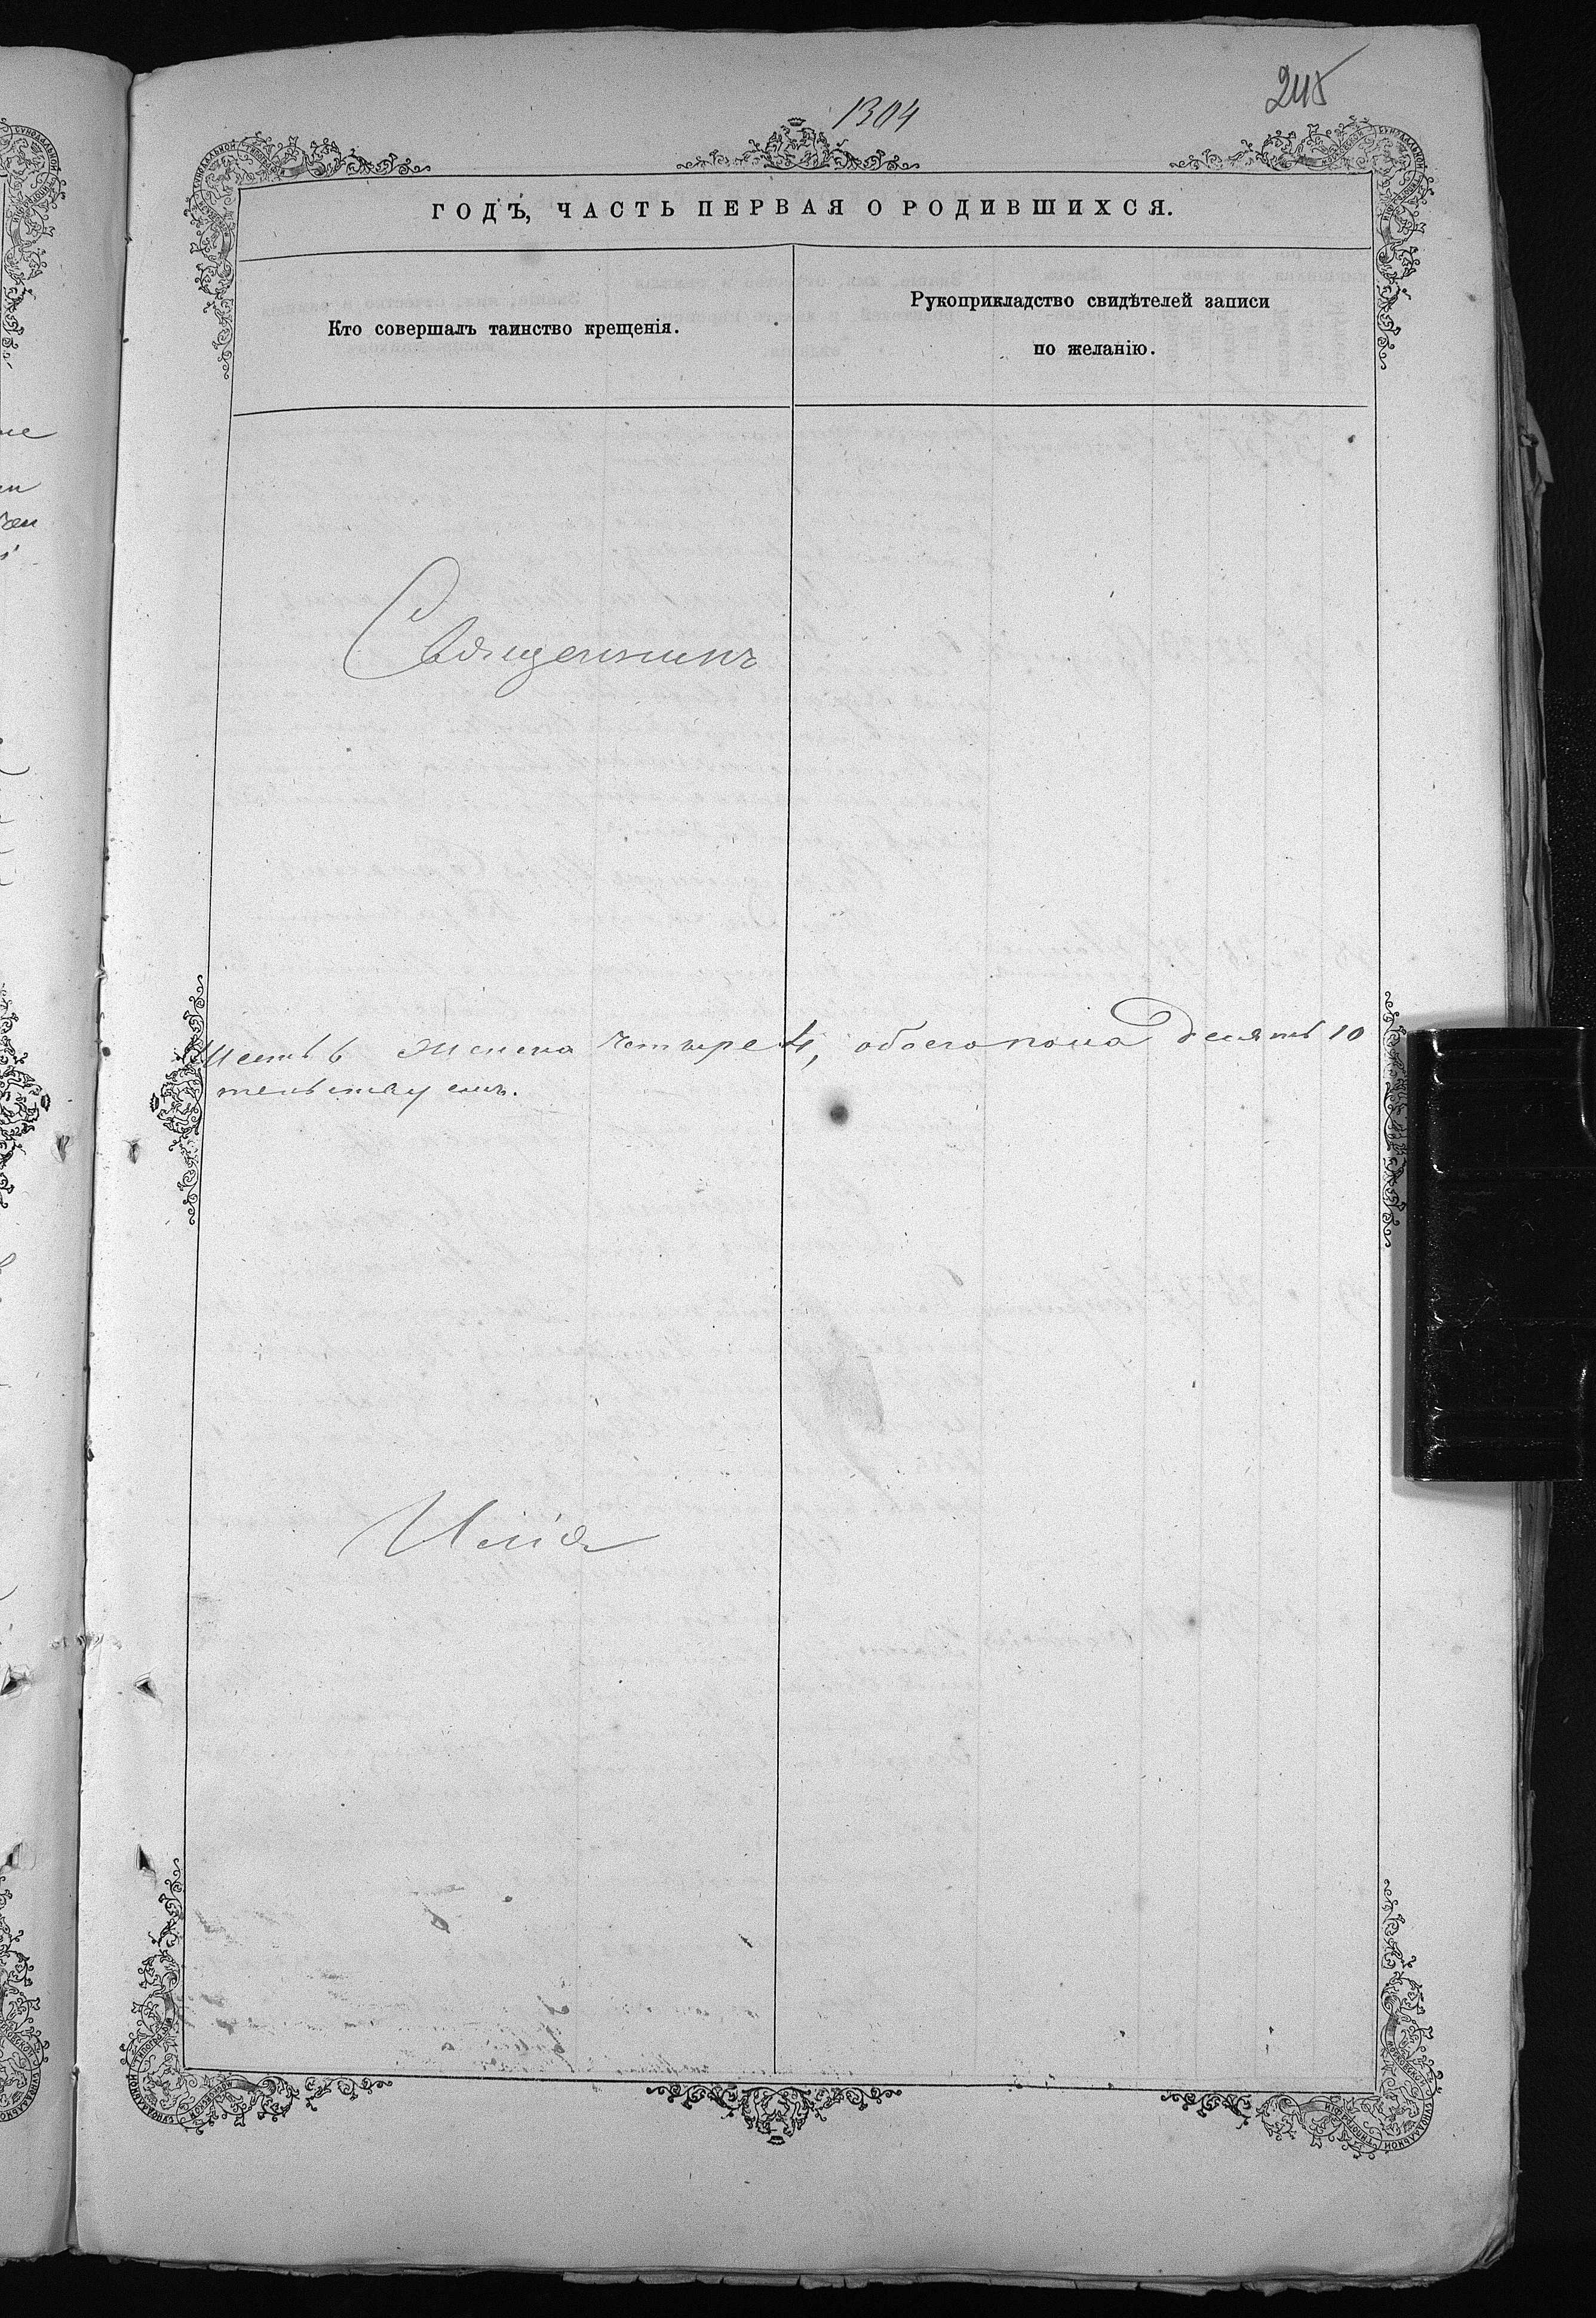 1304
245
ГОДЪ, ЧАСТЬ ПЕРВАЯ О РОДИВШИХСЯ.
Кто совершалъ таинство крещенія.
Рукоприкладство свидѣтелей записи
по желанію.
Священникъ
Шесть 6 женска четыре 4, обоего пола десять 10
тельствуемъ.
Илія